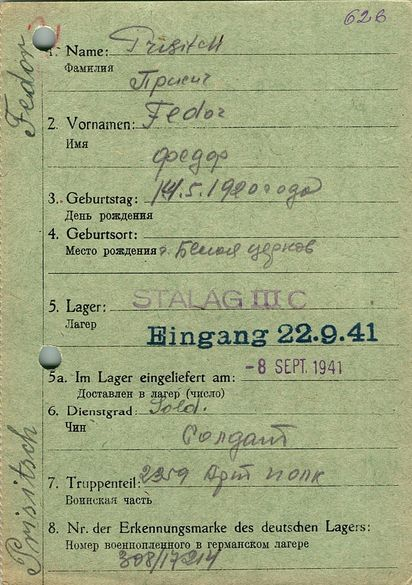 626
Fedor
1. Name: Prisitsch
Фамилия
Присич
2. Vornamen: Fedor
Имя
Федор
3. Geburtstag: 14.5.1920 года
День рождения
4. Geburtsort:
Место рождения г. Белая церков
5. Lager: STALAG III C
Лагер
Eingang 22.9.41
5a. Im Lager eingeliefert am: -8 SEPT. 1941
Доставлен в лагер (число)
6. Dienstgrad: Sold.
Чин
Солдат
7. Truppenteil: Арт полк
Воинская часть
8. Nr. der Erkennungsmarke des deutschen Lagers:
Номер военнопленного в германском лагере
308/17214
Prisitsch